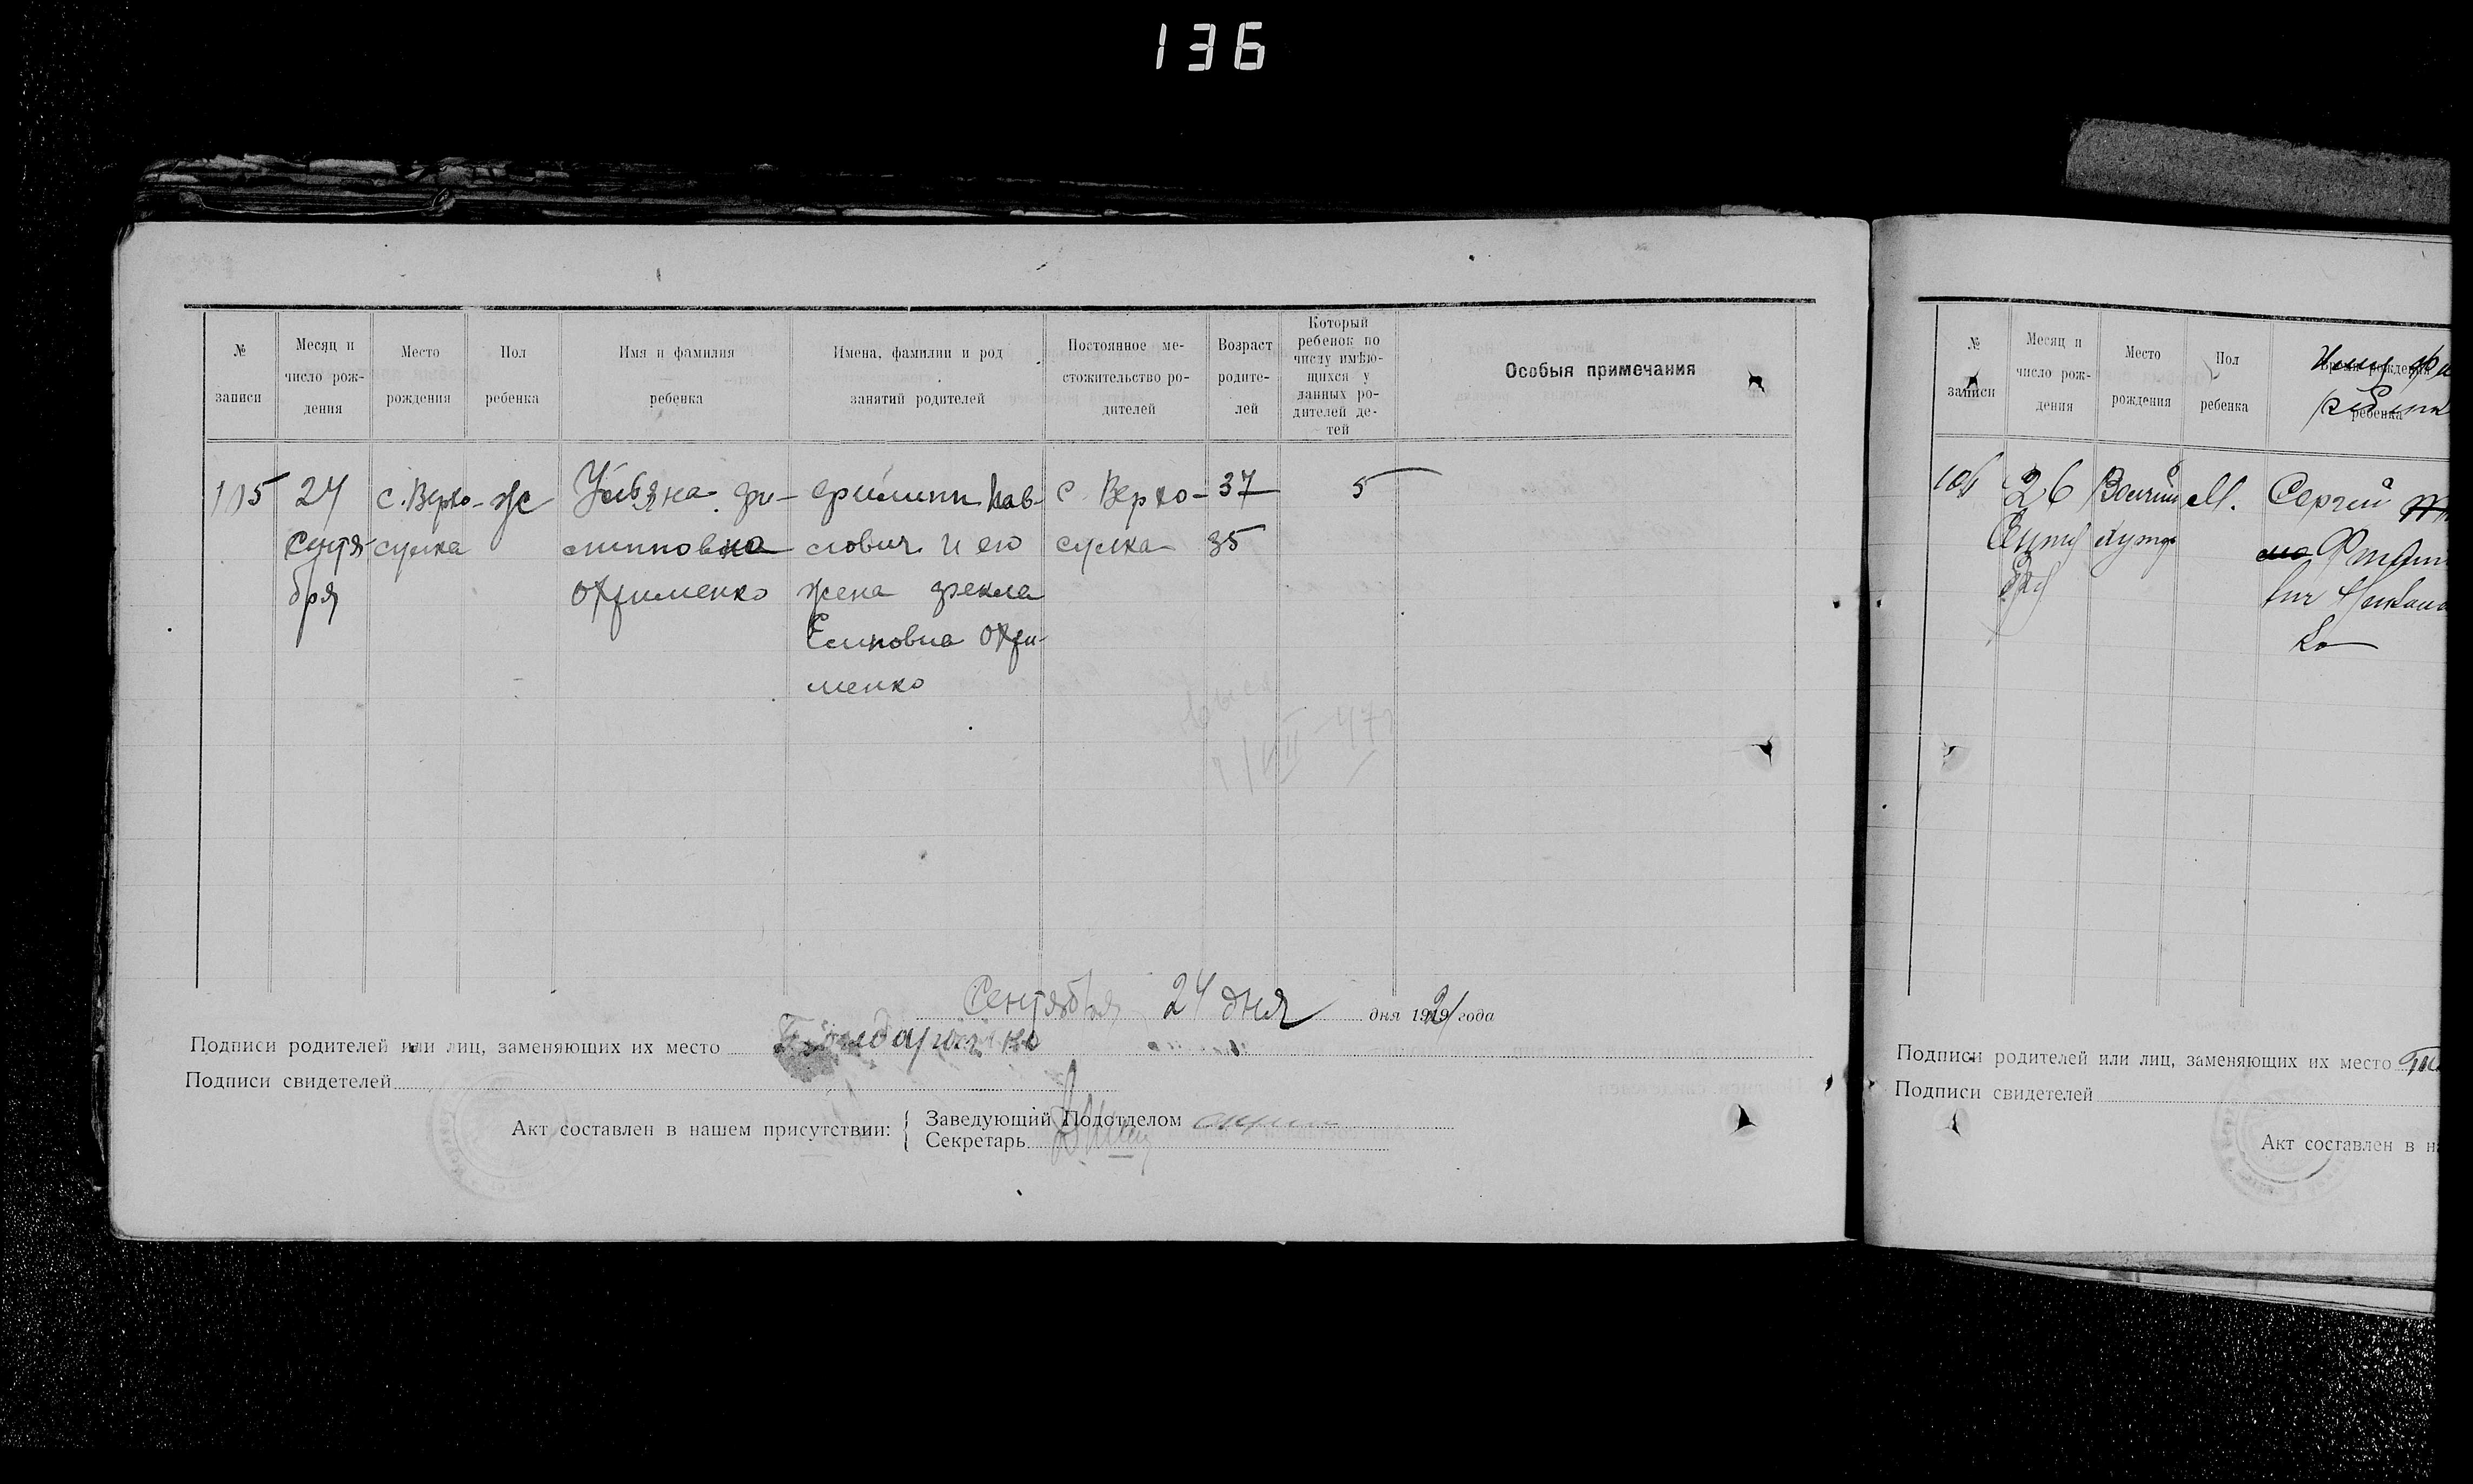 136
№ записи
Месяц и число рож-дения
Место рождения
Пол ребенка
Имя и фамилия ребенка
Имена, фамилии и род занятий родителей
Постоянное ме-стожительство ро-дителей
Возраст родите-лей
Который ребенок по числу имѣю-щихся у данных ро-дителей де-тей
Особыя примечания
105
24
сентя-
бря
с. Верхо-
сулка
ж
Ульяна Фи-
липповна
Охрименко
Филипп Пав-
лович и его
жена Фекла
Охри-
менко
с. Верхо-
сулка
37
35
5
Сентября 24 дня дня 1921 года
Подписи родителей или лиц, заменяющих их место Бондаренко
Подписи свидетелей
Акт составлен в нашем присутствии:
Заведующий Подотделом
Секретарь
№ записи
Месяц и число рож-дения
Место рождения
Пол ребенка
ребенка
106
26
М.
Сергей
Подписи родителей или лиц, заменяющих их место
Подписи свидетелей
Акт составлен в